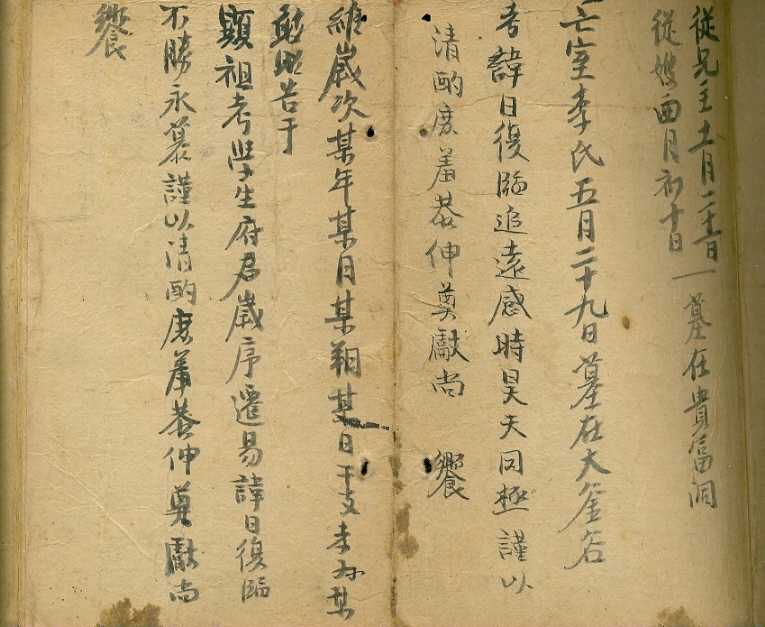 從兄主十一月二十一日
從嫂四月初十日 一墓在貴富洞
亡室李氏五月二十九日墓在大釜谷
考諱日復臨追遠感時昊天罔極謹以
清酌庶羞恭伸奠獻尚 饗
維歲次某年某月某朔某日干支孝孫某
敢昭告于
顯祖考學生府君歲序遷易諱日復臨
不勝永慕謹以清酌庶羞恭伸奠獻尚
饗